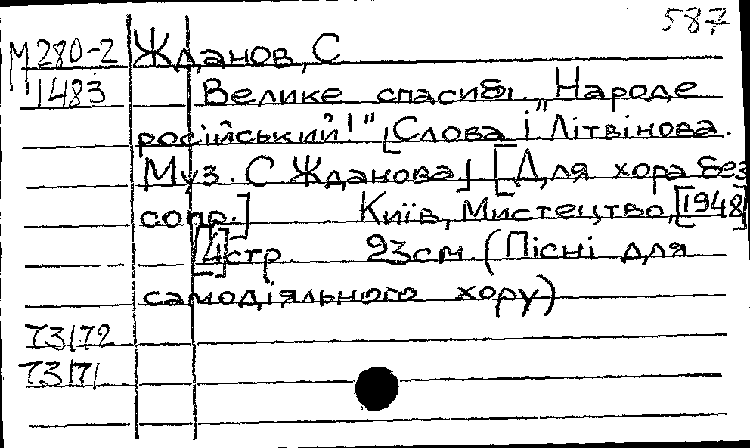 587
М 280-2 Жданов, С
1483 Велике спасибі „Народе
російський!" [Слова І Літвінова.
Муз. С Жданова] [Для хора без
сопр.] Київ, Мистецтво, [1948]
[4] стр. 23 см (Пісні для
самодіяльного хору)
73172
73171